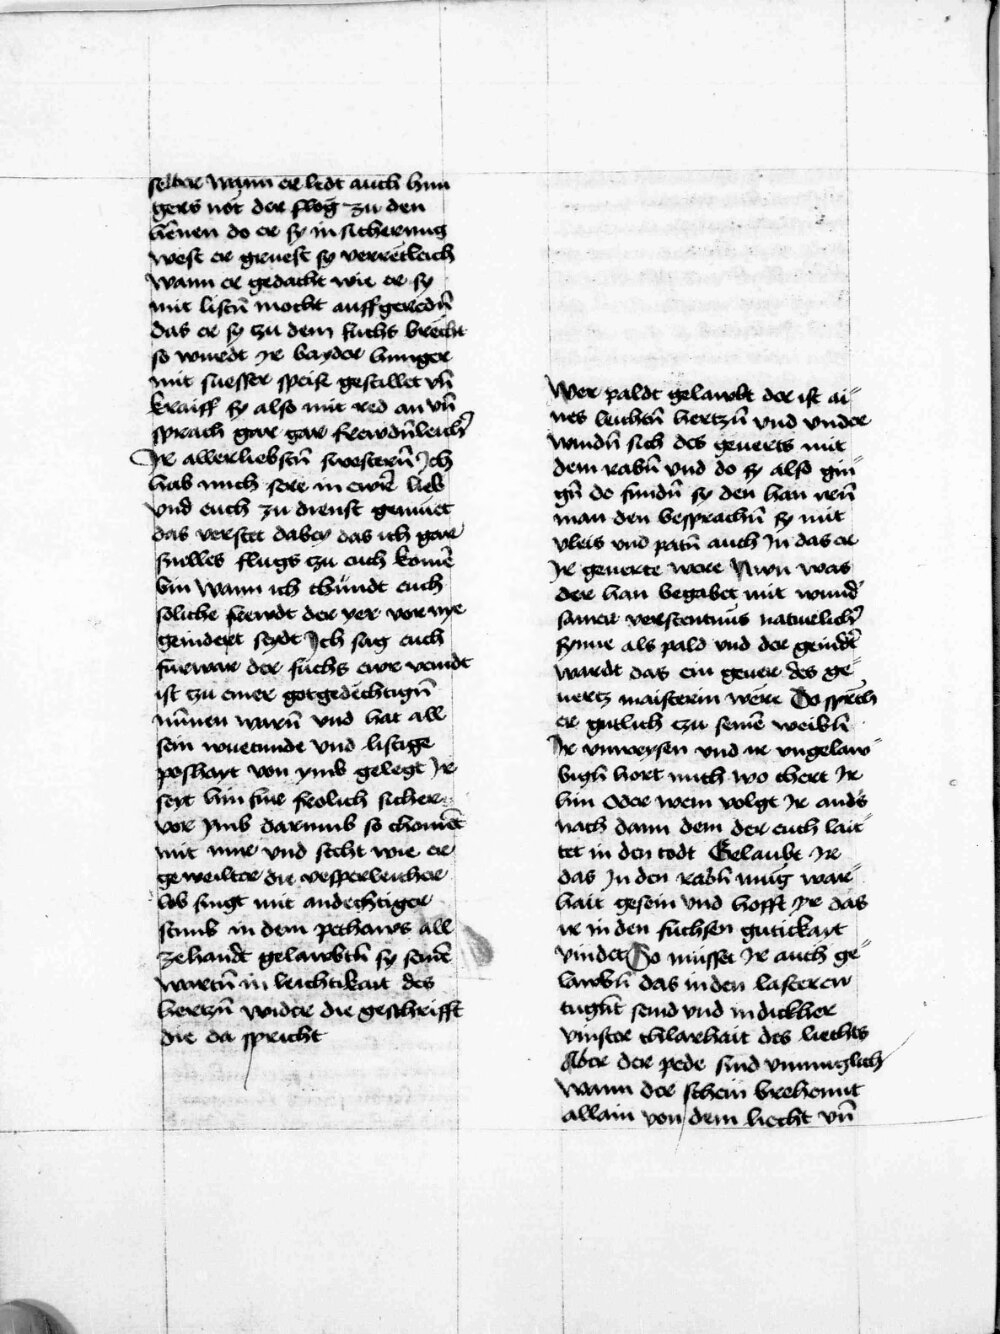 selber wann er ledt auch hun
gers not der flog zu den
hēnen do er sy in sicherung
west er gruest sy verretleich
wann er gedacht wie er sy
mit listn̄ mocht auffgeredn̄
das er sy zu dem fuchs brecht
so wurdt Ir bayder hunger
mit suesser speise gestillet vn̄
kraiff sy also mit red an vn̄
sprach gar gar frewdn̄leich
Ir allerliebstn̄ swestern̄ Ich
hab mich sere in ewr̄ lieb
vnd euch zu dienst gemuet
das verstet dabey das ich gar
snelles flugs czu euch komē
bin Wann ich chündt euch
soliche frewdt der yer vor nye
geindert seydt Ich sag euch
furwar der fuchs ewr veindt
ist czu einer gotgedechtign̄
nūnen warn̄ vnd hat all
sein wuetunde vnd listige
poshayt von ymb gelegt Ir
seyt hin fur frolich sicher
vor ymb darumb so chomēt
mit mir vnd secht wie er
geweilter die vesperleicher
lob singt mit andechtiger
stimb in dem pethaws all
zehandt gelawbtn̄ sy seinē
wortn̄ in leichtikait des
hertzn̄ wider die geschrifft
die da spricht
Wer paldt gelawbt der ist ai
nes leichtn̄ hertzn̄ vnd vnder
wundn̄ sich des geuerts mit
dem rabn̄ vnd do sy also gin
gn̄ do fundn̄ sy den han nen̄
man den besprachn̄ sy mit
vleis vnd patn̄ auch In das er
Ir geuerte were Nwn was
der han begabet mit wund
samer verstentnus naturlich
synne als pald vnd der geindt
wardt das ein geuer des ge
uertz maisterin were Do sprech
er gutlich czu seinē weibln̄
Ir vnweysen vnd ir vngelaw
bign̄ hort mich wo chert Ir
hin oder wem volgt Ir ands
nach dann dem der euch lait
tet in den todt Gelaubt Ir
das In den rabn̄ mug war
hait gesein vnd hofft yr das
ir in den fuchsen gutickait
vindet So musset Ir auch ge
lawbn̄ das in den lastern
tugn̄t seind vnd in dickher
vinster chlarhait des liechts
Aber der pede sind vnmuglich
Wann der schein brehennt
allain von dem liecht vn̄